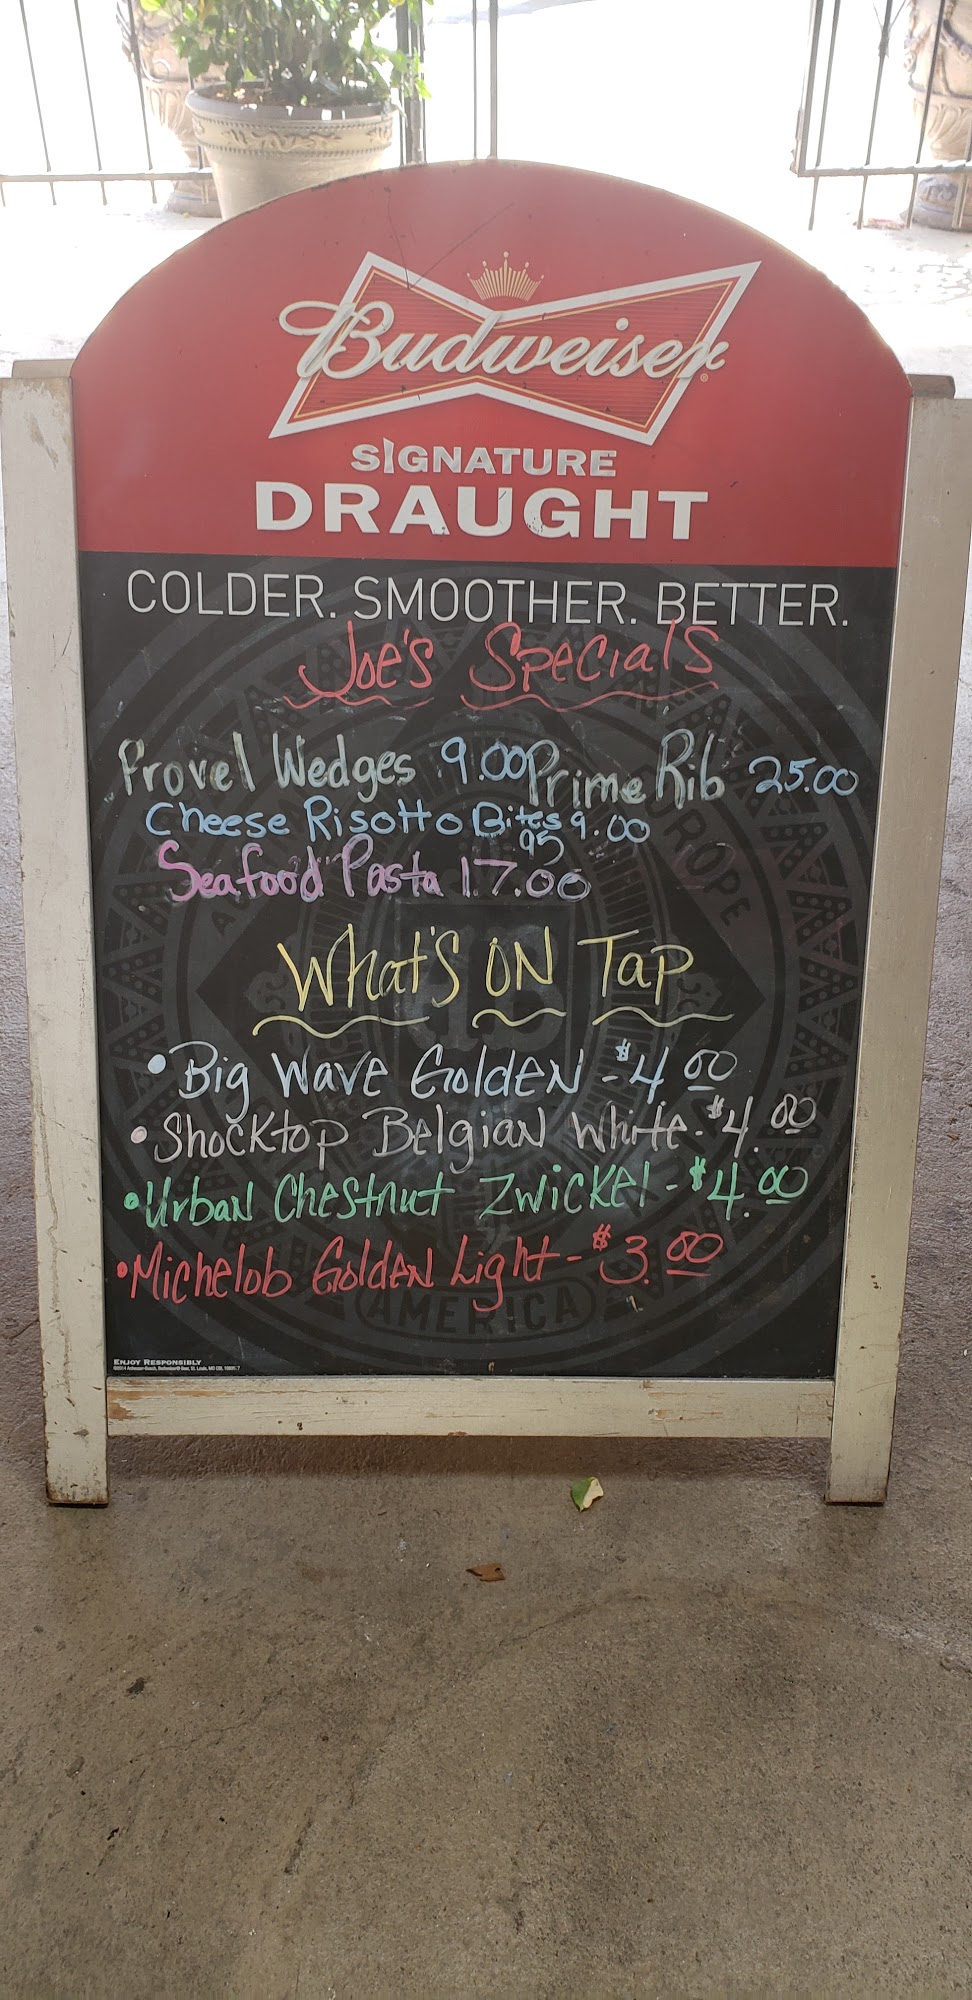 Budweiser
SIGNATURE
DRAUGHT
COLDER. SMOOTHER. BETTER.
Joe's Specials
Provel Wedges 9.00 Prime Rib 25.00
Cheese Risotto Bites 9.00
95
Seafood Pasta 17.00
What's ON Tap
• Big Wave Golden - $4.00
• Shocktop Belgian White - $4.00
• Urban Chestnut Zwickel - $4.00
• Michelob Golden Light - $3.00
AMERICA
ENJOY RESPONSIBLY